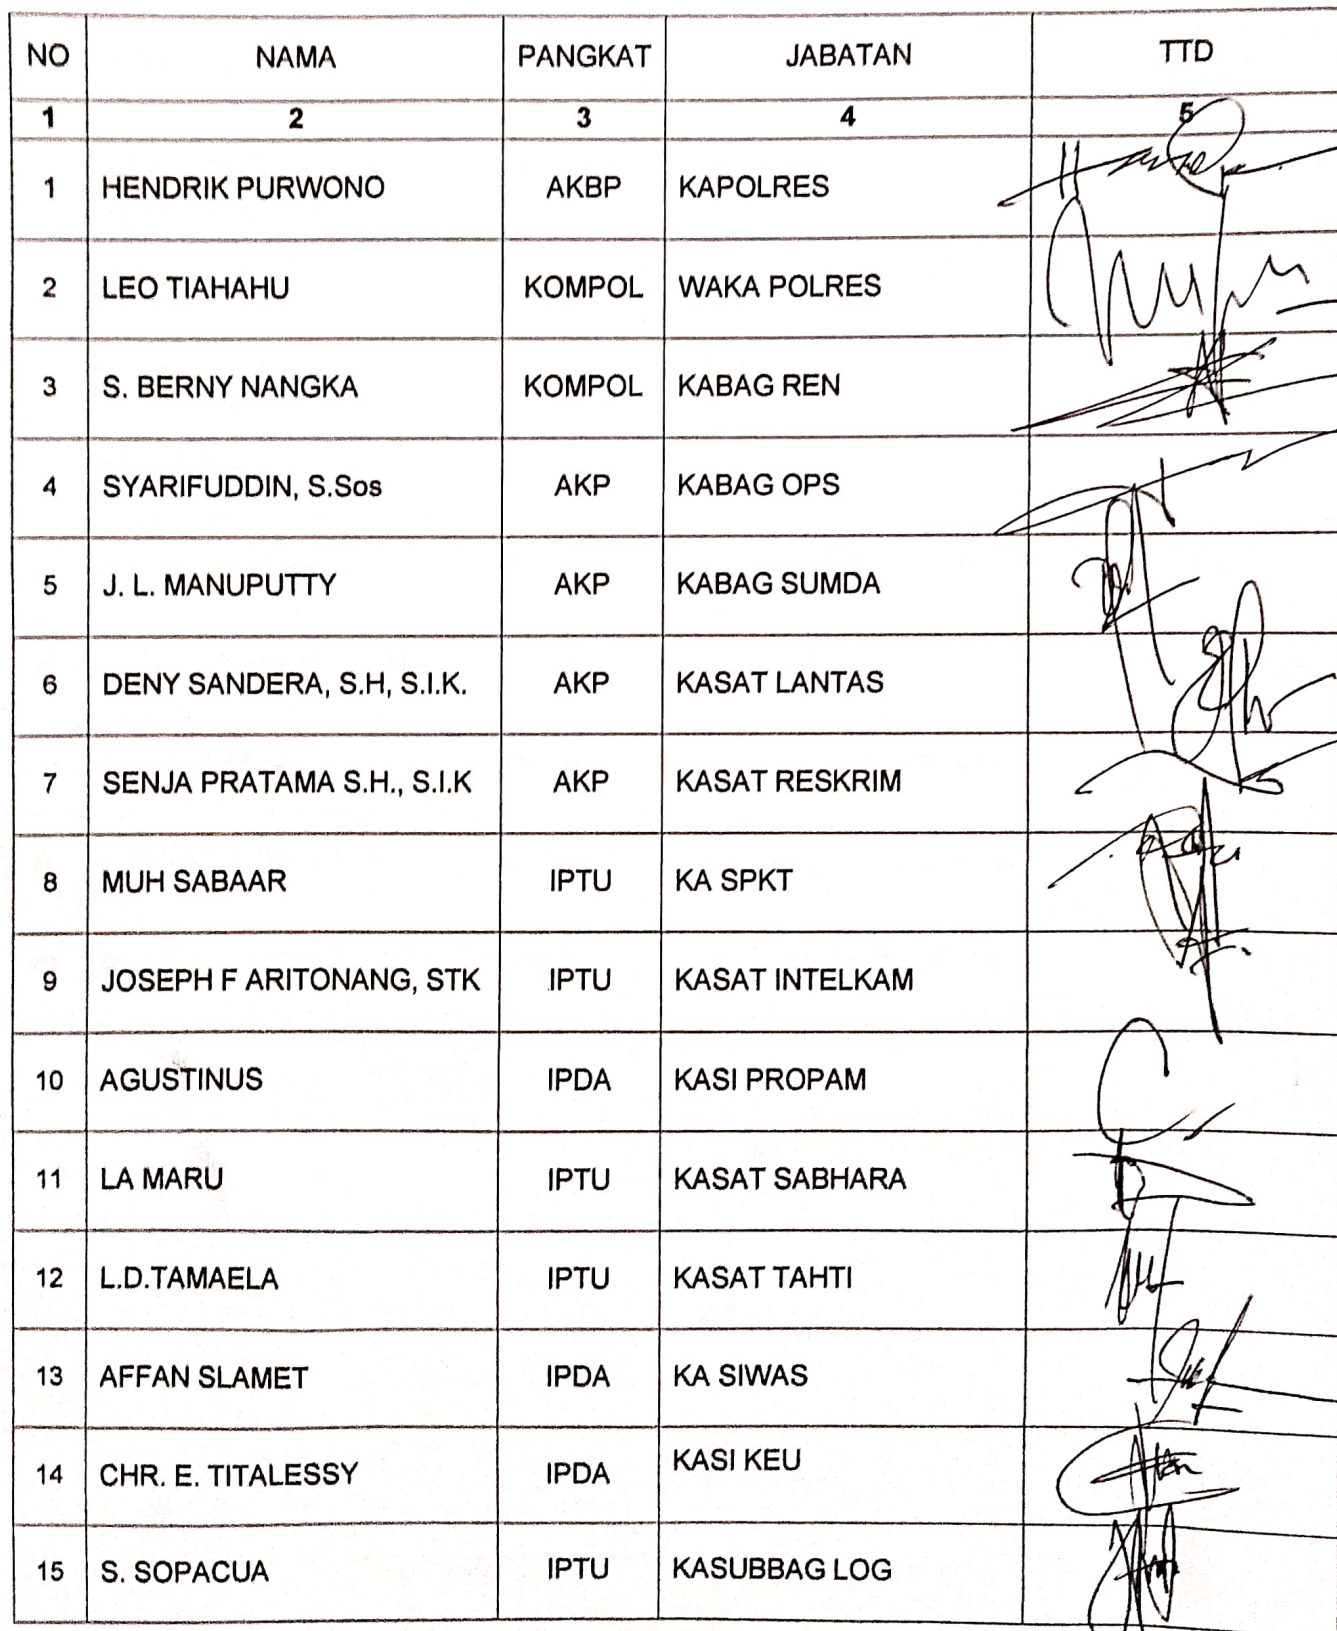 NO NAMA PANGKAT JABATAN TTD
1 2 3 4 5
1 HENDRIK PURWONO AKBP KAPOLRES
2 LEO TIAHAHU KOMPOL WAKA POLRES
3 S. BERNY NANGKA KOMPOL KABAG REN
4 SYARIFUDDIN, S.Sos AKP KABAG OPS
5 J. L. MANUPUTTY AKP KABAG SUMDA
6 DENY SANDERA, S.H, S.I.K. AKP KASAT LANTAS
7 SENJA PRATAMA S.H., S.I.K AKP KASAT RESKRIM
8 MUH SABAAR IPTU KA SPKT
9 JOSEPH F ARITONANG, STK IPTU KASAT INTELKAM
10 AGUSTINUS IPDA KASI PROPAM
11 LA MARU IPTU KASAT SABHARA
12 L.D.TAMAELA IPTU KASAT TAHTI
13 AFFAN SLAMET IPDA KA SIWAS
14 CHR. E. TITALESSY IPDA KASI KEU
15 S. SOPACUA IPTU KASUBBAG LOG